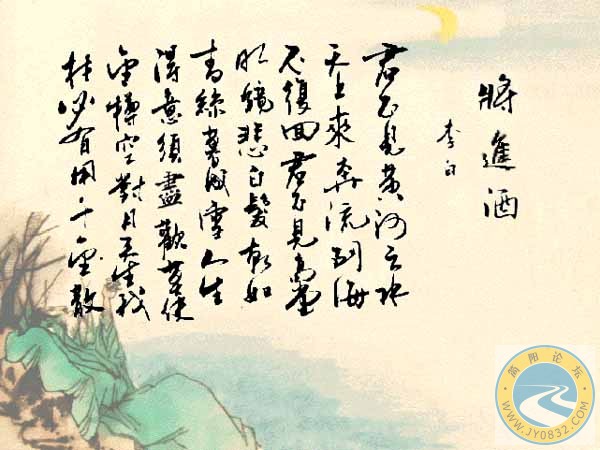 將進酒
李白
君不見黃河之水
天上來奔流到海
不復回君不見高堂
明鏡悲白髮朝如
青絲暮成雪人生
得意須盡歡莫使
金樽空對月天生我
材必有用千金散
简阳论坛
WWW.JY0832.COM